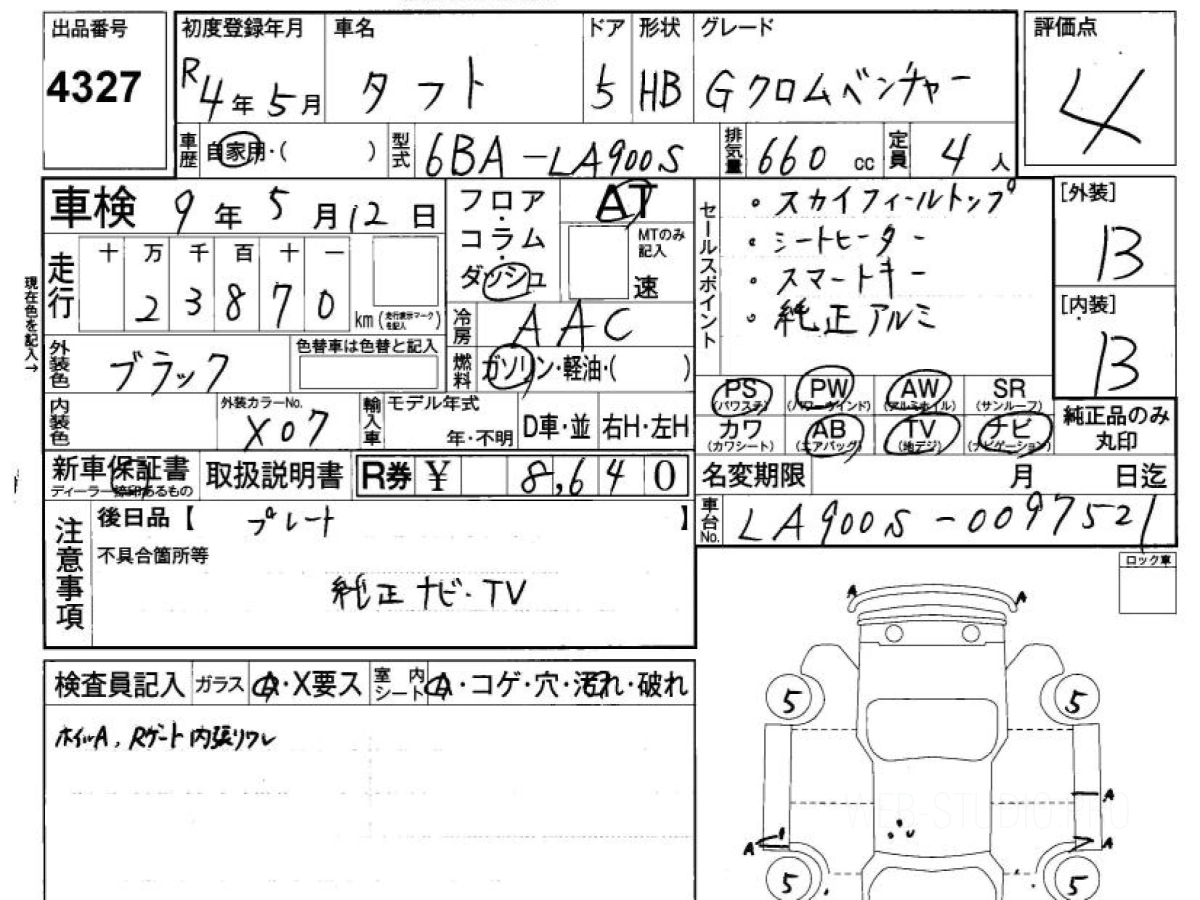 出品番号 初度登録年月 車名 ドア 形状 グレード 評価点
4327 R4年5月 タフト 5 HB Gクロムベンチャー 4
車歴 自家用・( ) 型式 6BA-LA900S 排気量 660 cc 定員 4人
車検 9年5月12日 フロア AT セールスポイント ・スカイフィールトップ [外装]
コラム MTのみ記入 ・シートヒーター B
走行 十 万 千 百 十 一 ダッシュ 速 ・スマートキー
2 3 8 7 0 km (走行表示マークを記入) ・純正アルミ [内装]
現在色を記入→ 冷房 AAC B
外装色 ブラック 色替車は色替と記入 燃料 ガソリン・軽油・( )
PS (パワステ) PW (パワーウインド) AW (アルミホイル) SR (サンルーフ) 純正品のみ丸印
内装色 外装カラーNo. X07 輸入車 モデル年式 年・不明 D車・並 右H・左H
カワ (カワシート) AB (エアバッグ) TV (地デジ) ナビ (ナビゲーション)
新車保証書 ディーラー捺印あるもの 取扱説明書 R券 ¥ 8,640 名変期限 月 日迄
注意事項 後日品【 プレート 】 車台No. LA900S-0097521
不具合箇所等 ロック車
純正ナビ・TV
A A
検査員記入 ガラス A・X要ス 室内シート A・コゲ・穴・汚れ・破れ
5 5
ホイルA, Rゲート内張りワレ
A
WEB-STUDIO.PRO
A A
5 5